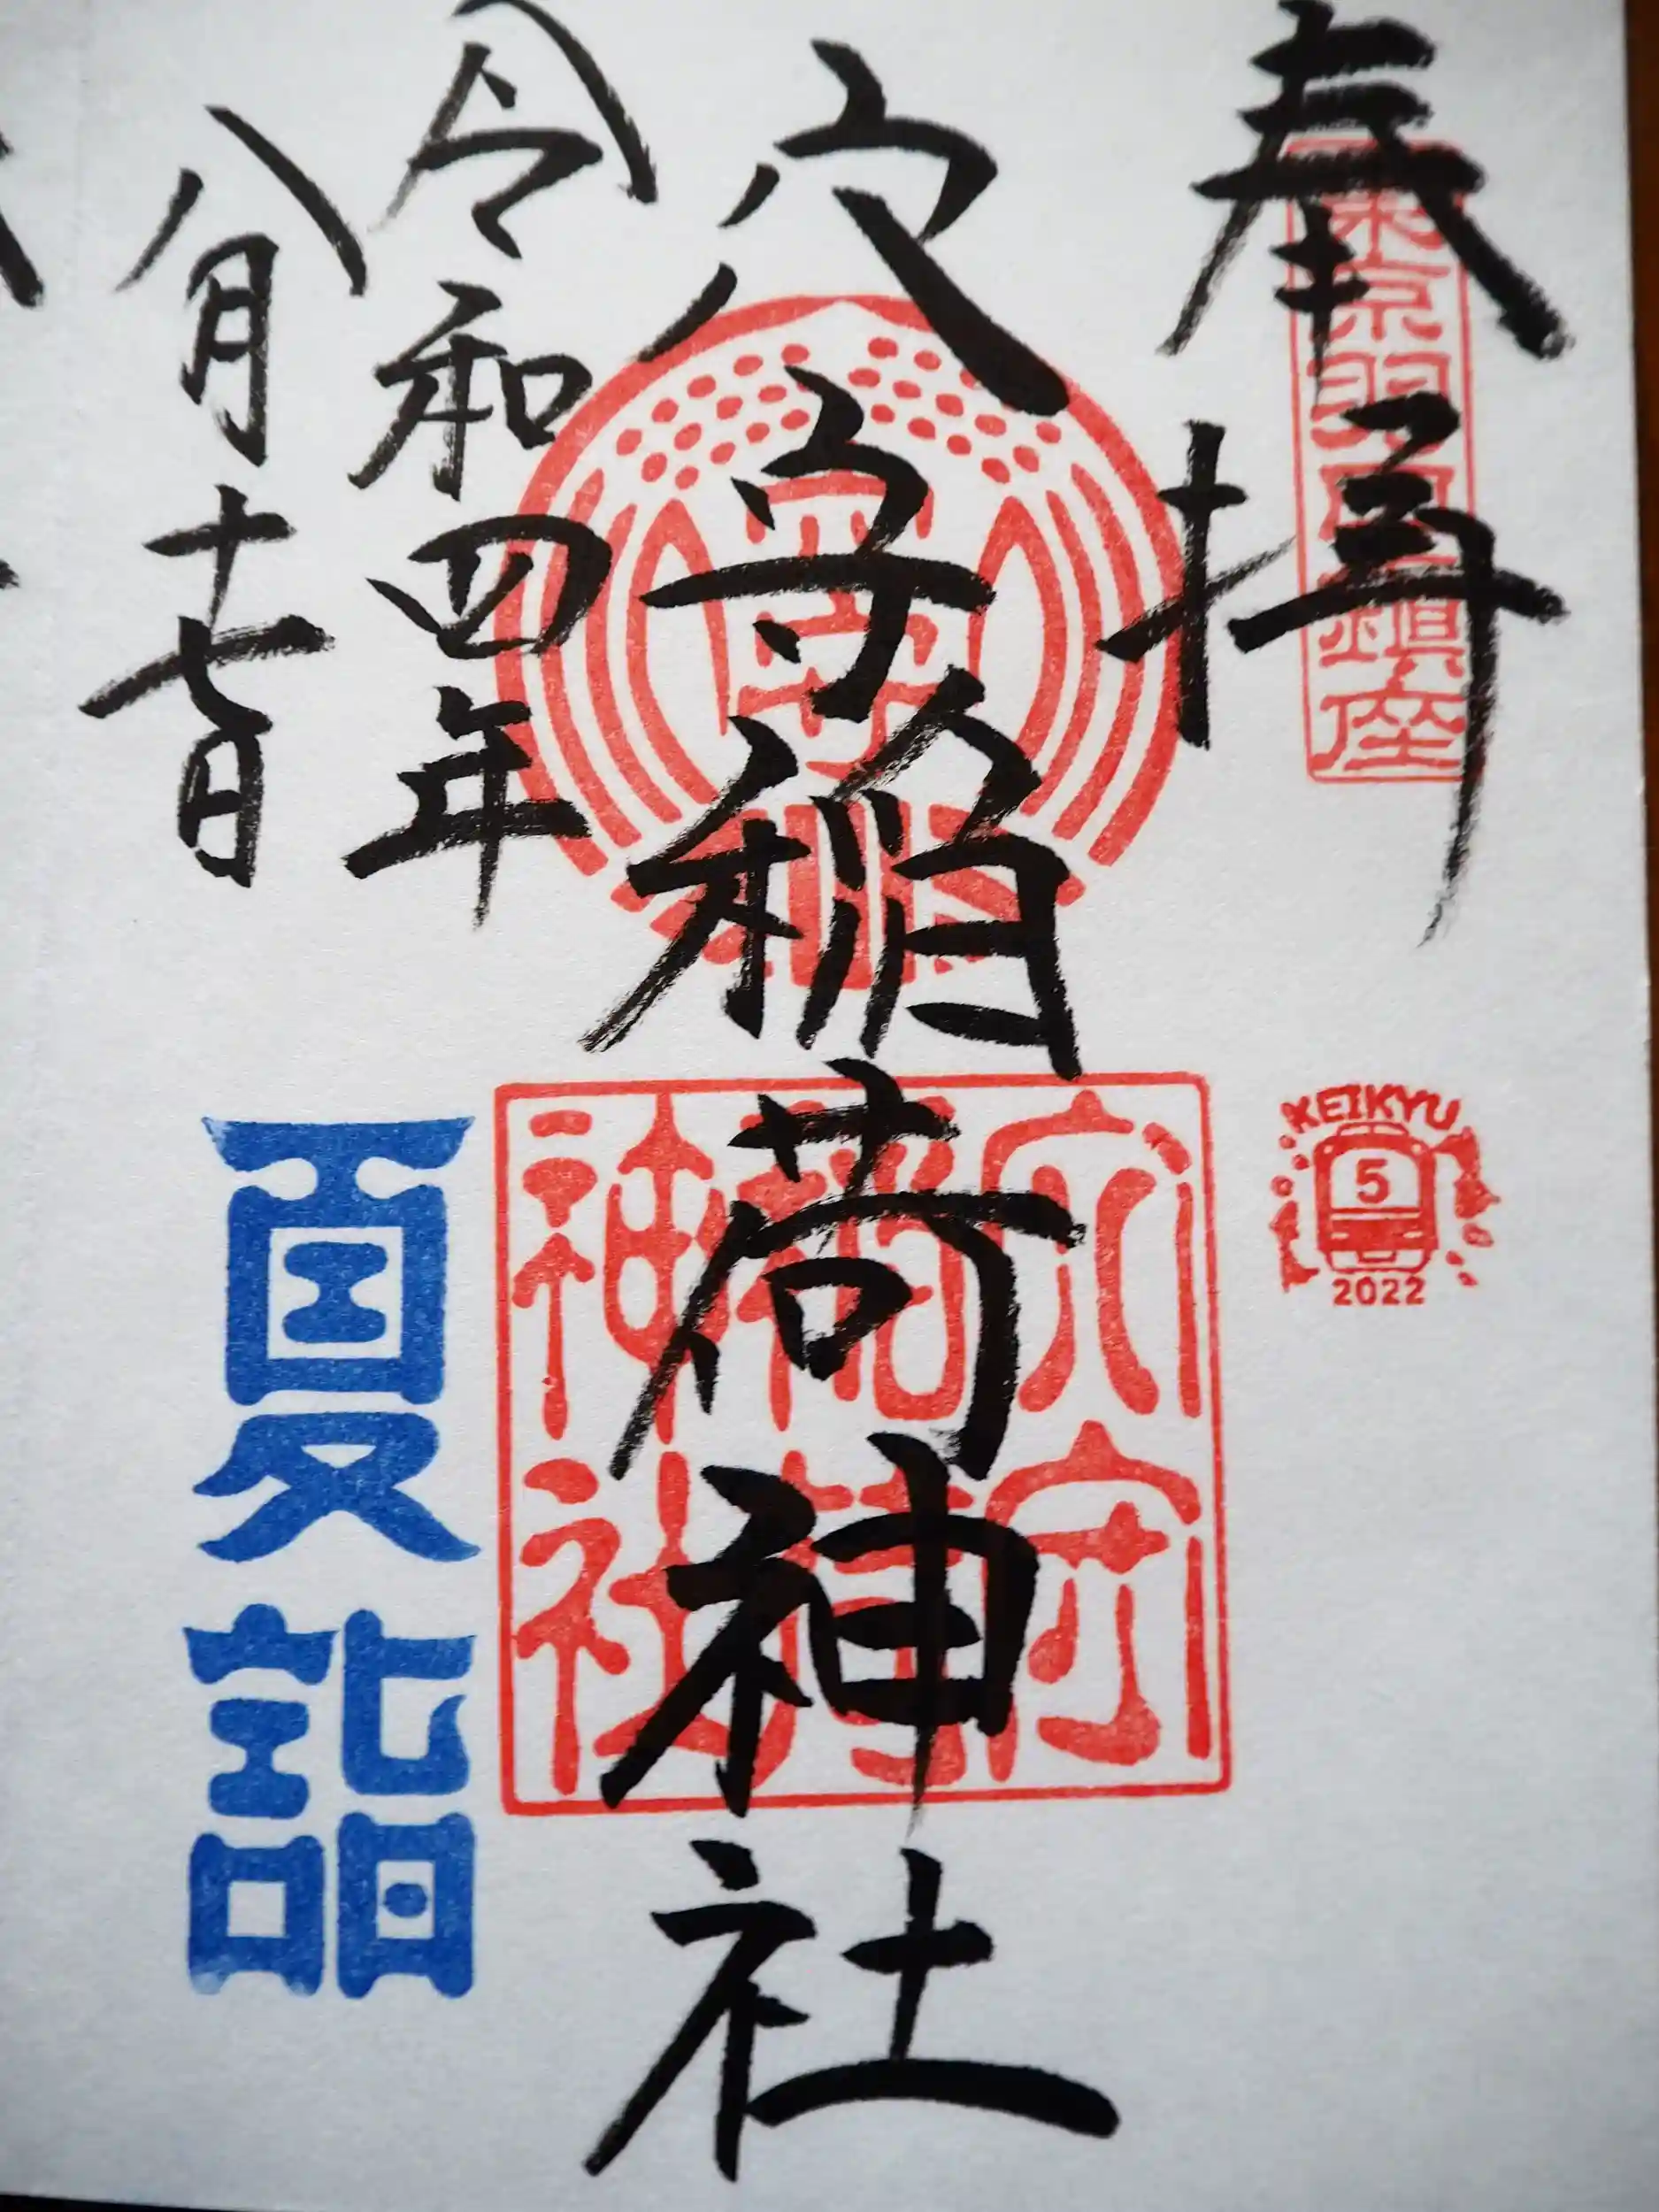 奉拝
東京羽田鎮座
KEIKYU
5
2022
穴守稲荷神社
穴守
稲荷
神社
令和四年
八月十七日
夏詣